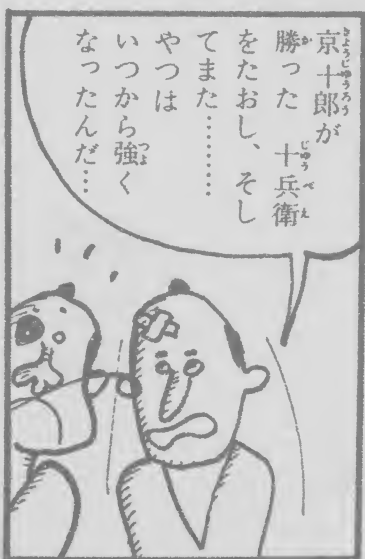 京十郎が
勝った 十兵衛
をたおし、そし
てまた………
やつは
いつから強く
なったんだ…